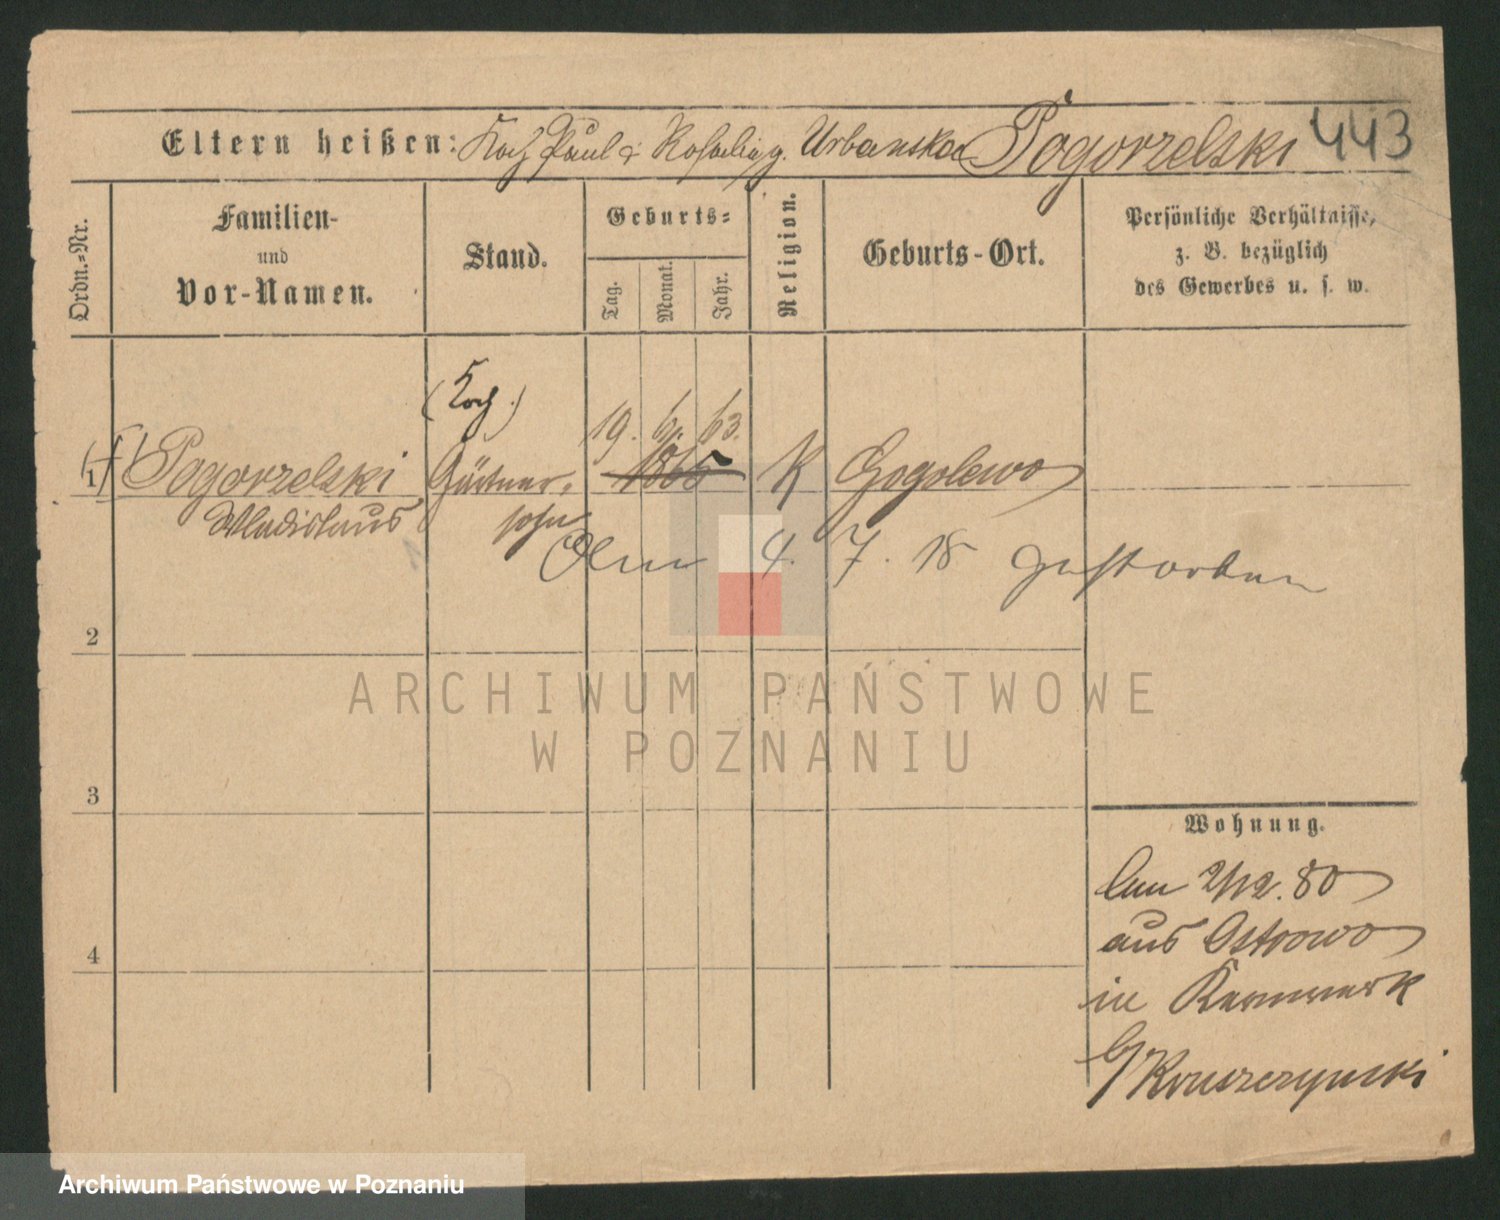 Eltern heißen: Koch Paul & Rosalia g. Urbanska Pogorzelski 443
Ordn.-Nr.
Familien-
und
Vor-Namen.
Stand.
Geburts-
Tag.
Monat.
Jahr.
Religion.
Geburts-Ort.
Persönliche Verhältnisse,
z. B. bezüglich
des Gewerbes u. s. w.
(Koch)
19. 6. 63.
1 Pogorzelski Gärtner- 1865 K Gogolewo
Wladislaus sohn
4. 7. 18 gestorben
2
3
4
Wohnung.
2/12. 80
aus Ostrowo
in Kernwerk
b/ Kruszczynski
ARCHIWUM PAŃSTWOWE
W POZNANIU
Archiwum Państwowe w Poznaniu